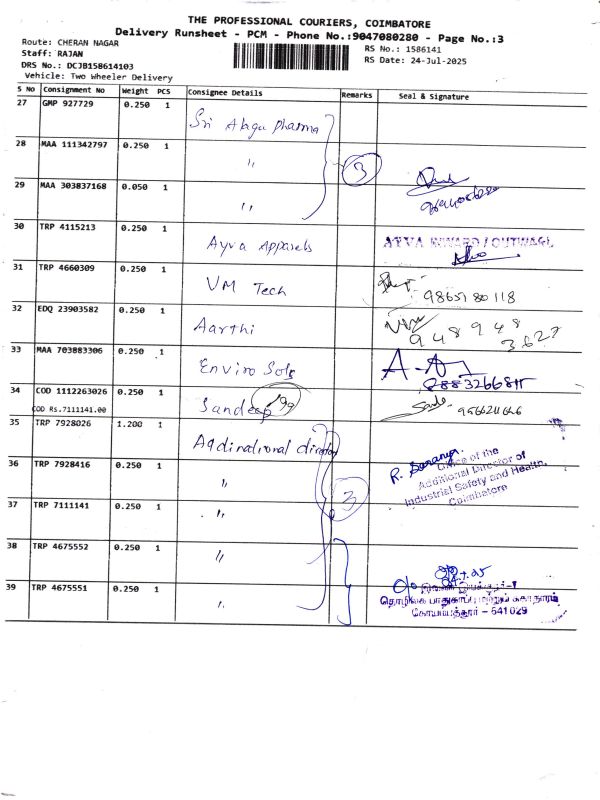 THE PROFESSIONAL COURIERS, COIMBATORE
Delivery Runsheet - PCM - Phone No.:9047080280 - Page No.:3
Route: CHERAN NAGAR
Staff: RAJAN
DRS No.: DCJB158614103
Vehicle: Two Wheeler Delivery
RS No.: 1586141
RS Date: 24-Jul-2025
S No Consignment No Weight PCS Consignee Details Remarks Seal & Signature
27 GMP 927729 0.250 1 Sri Alagu Pharma
28 MAA 111342797 0.250 1 " 3
29 MAA 303837168 0.050 1 "
30 TRP 4115213 0.250 1 Ayva Apparels AYVA INWARD / OUTWARD
31 TRP 4660309 0.250 1 VM Tech 9865180118
32 EDQ 23903582 0.250 1 Aarthi 948948 3627
33 MAA 703883306 0.250 1 Enviro Sols 9883266811
34 COD 1112263026 0.250 1 Sandeep 199
COD Rs.7111141.00
35 TRP 7928026 1.200 1 Addinational director
36 TRP 7928416 0.250 1 " R. Saranya Office of the
Additional Director of
Industrial Safety and Health,
Coimbatore
37 TRP 7111141 0.250 1 " 3
38 TRP 4675552 0.250 1 "
39 TRP 4675551 0.250 1 "
தொழிலக பாதுகாப்பு மற்றும் சுகாதாரம்
கோயம்புத்தூர் - 641029